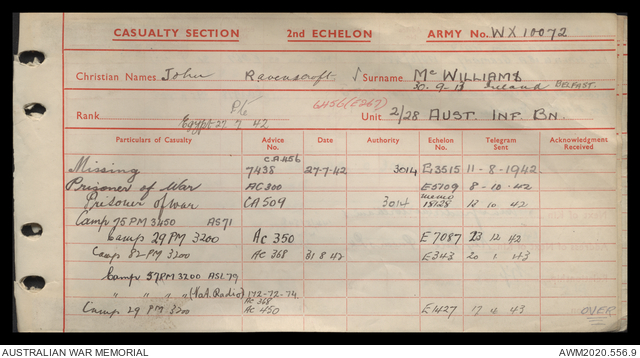 CASUALTY SECTION 2ND ECHELON ARMY No. WX10072
Christian Names John Ravenscroft Surname McWILLIAMS
30-9-17 Ireland BELFAST.
Rank Pte 6456(E267) Unit 2/28 AUST. INF. BN.
Egypt 27 7 42
Particulars of Casualty Advice No. Date Authority Echelon No. Telegram Sent Acknowledgment Received
CA456
Missing 7438 27-7-42 3014 P13515 11-8-1942
Prisoner of War AC300 E5709 8-10-42
Prisoner of war CA509 3014 memo 18128 12 10 42
Camp 75 PM 3450 AS71
Camp 29 PM 3200 AC 350 E7087 23 12 42
Camp 82 PM 3200 AC 368 31 8 42 E343 20 1 43
Camp 57 PM 3200 ASL79
" " " " (Vat. Radio) 172-72-74.
AC 368
Camp 29 PM 3200 AC 450 E1427 17 4 43
OVER
AUSTRALIAN WAR MEMORIAL AWM2020.556.9